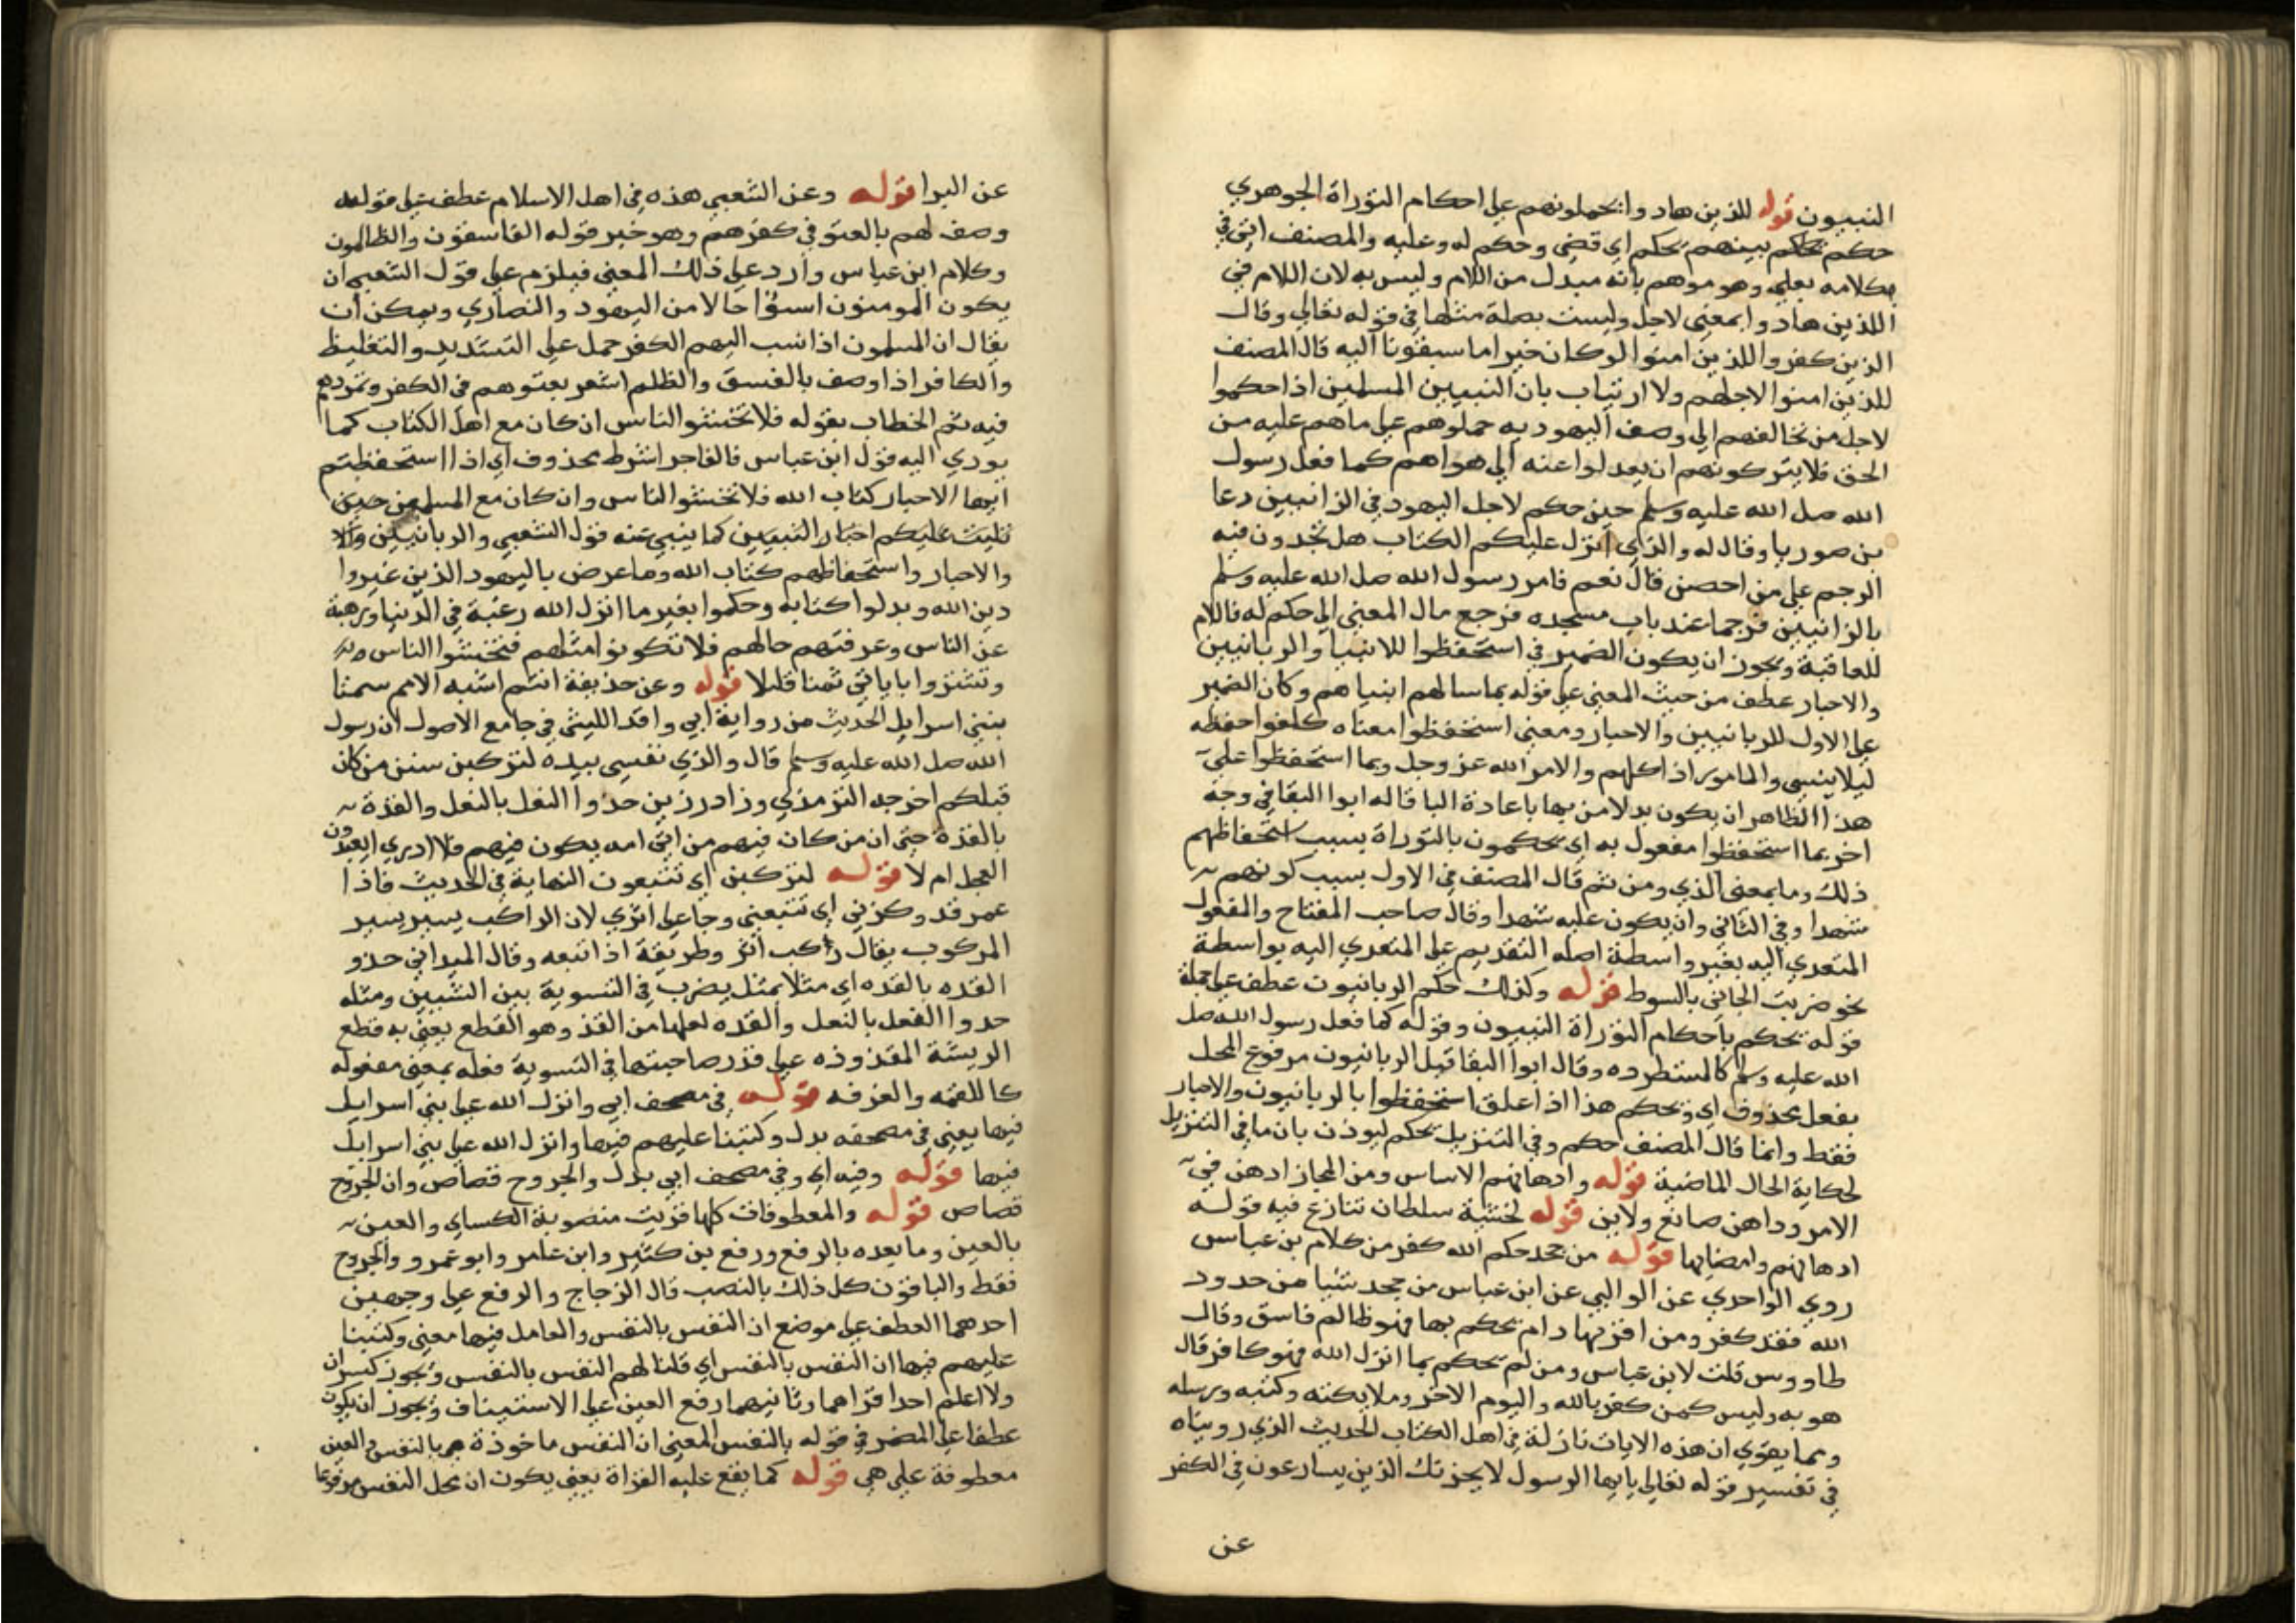 النبيون قوله للذين هادوا يحملونهم على احكام التوراة الجوهري
حكم يحكم بينهم بحكم اي قضى وحكم له وعليه والمصنف اتى في
كلامه بعلى وهو موهم بانه مبدل من اللام وليس به لان اللام في
للذين هادوا بمعنى لاجل وليست بصلة مثلها في قوله تعالى وقال
الذين كفروا للذين امنوا لو كان خيرا ما سبقونا اليه قال المصنف
للذين امنوا لاجلهم ولا ارتياب بان النبيين المسلمين اذا حكموا
لاجل من تخالفهم الى وصف اليهود به حملوهم على ما هم عليه من
الحق فلا يتركونهم ان يعدلوا عنه الى هواهم كما فعل رسول
الله صلى الله عليه وسلم حين حكم لاجل اليهود في الزانيين دعا
بن صوريا وقال له والذي انزل عليكم الكتاب هل تجدون فيه
الرجم على من احصن قال نعم فامر رسول الله صلى الله عليه وسلم
بالزانيين فرجما عند باب مسجده فرجع مال المعنى الى حكم له فاللام
للعاقبة ويجوز ان يكون الضمير في استحفظوا للانبيا والربانيين
والاحبار عطف من حيث المعنى على قوله بما سالهم انبياهم وكان الضمير
على الاول للربانيين والاحبار ومعنى استحفظوا معناه كلفوا حفظه
ليلا ينسى والمامور اذا كلهم والامر الله عز وجل وبما استحفظوا على
هذا الظاهر ان يكون بدلا من بها باعادة البا قاله ابوا البقا في وجه
اخر بما استحفظوا مفعول به اي يحكمون بالتوراة بسبب استحفاظهم
ذلك وما بمعنى الذي ومن ثم قال المصنف في الاول بسبب كونهم
شهدا وفي الثاني وان يكون عليه شهدا وقال صاحب المفتاح والمفعول
المتعدي اليه بغير واسطة اصله التقديم على المتعدي اليه بواسطة
نحو ضربت الجاني بالسوط قوله وكذلك حكم الربانيون عطف على جملة
قوله يحكم باحكام التوراة النبيون وقوله كما فعل رسول الله صلى
الله عليه وسلم كالمستطرد وقال ابوا البقا قيل الربانيون مرفوع المحل
بفعل محذوف اي ويحكم هذا اذا علق استحفظوا بالربانيون والاحبار
فقط وانما قال المصنف حكم وفي التنزيل يحكم ليوذن بان ما في التنزيل
لحكاية الحال الماضية قوله وادهانهم الاساس ومن المجاز ادهن في
الامر وداهن صانع ولاين قوله لخشية سلطان تنازع فيه قوله
ادهانهم وامضايها قوله من جحد حكم الله كفر من كلام بن عباس
روى الواحدي عن الوالبي عن ابن عباس من جحد شيئا من حدود
الله فقد كفر ومن اقر بها ولم يحكم بها فهو ظالم فاسق وقال
طاووس قلت لابن عباس ومن لم يحكم بما انزل الله فهو كافر قال
هو به وليس كمن كفر بالله واليوم الاخر وملايكته وكتبه ورسله
ومما يقوي ان هذه الايات نازلة في اهل الكتاب الحديث الذي رويناه
في تفسير قوله تعالى يايها الرسول لا يحزنك الذين يسارعون في الكفر
عن
عن البرا قوله وعن الشعبي هذه في اهل الاسلام عطف على قوله
وصف لهم بالعتو في كفرهم وهو خبر قوله الفاسقون والظالمون
وكلام ابن عباس وارد على ذلك المعنى فيلزم على قول الشعبي ان
يكون المومنون اسوا حالا من اليهود والنصارى ويمكن ان
يقال ان المسلمون اذا نسب اليهم الكفر حمل على التشديد والتغليظ
والكافر اذا وصف بالفسق والظلم اشعر بعتوهم في الكفر وتمردهم
فيه ثم الخطاب بقوله فلا تخشوا الناس ان كان مع اهل الكتاب كما
يودي اليه قول ابن عباس فالفا جزا شرط محذوف اي اذا استحفظتم
ايها الاحبار كتاب الله فلا تخشوا الناس وان كان مع المسلمين حين
تليت عليكم اخبار النبيين كما ينبي عنه قول الشعبي والربانيين والا
والاحبار واستحفاظهم كتاب الله وما عرض باليهود الذين غيروا
دين الله وبدلوا كتابه وحكموا بغير ما انزل الله رغبة في الدنيا ورهبة
عن الناس وعرفتهم حالهم فلا تكونوا مثلهم فتخشوا الناس
وتشتروا باياتي ثمنا قليلا قوله وعن حذيفة انتم اشبه الامم سمتا
ببني اسرايل الحديث من رواية ابي واقد الليثي في جامع الاصول ان رسول
الله صلى الله عليه وسلم قال والذي نفسي بيده لتركبن سنن من كان
قبلكم اخرجه الترمذي وزاد رزين حذوا النعل بالنعل والقذة
بالقذة حتى ان من كان فيهم من اتى امه يكون فيهم فلا ادري ايعبدون
العجل ام لا قوله لتركبن اي تتبعون النهاية في الحديث فاذا
عمر قد ركبني اي تتبعني وجا على اثري لان الراكب يسير بسير
المركوب يقال ركب اثر وطريقه اذا تبعه وقال الميداني حذو
القذه بالقذه اي مثلا بمثل يضرب في التسوية بين الشيين ومثله
حذوا النعل بالنعل والقذه لعلها من القذ وهو القطع يعني به قطع
الريشة المقذوذه على قدر صاحبتها في التسوية فعله بمعنى مفعوله
كاللقمه والغرفه قوله في مصحف ابي وانزل الله على بني اسرايل
فيها يعني في مصحفه بدل وكتبنا عليهم فيها وانزل الله على بني اسرايل
فيها قوله وفيه اي وفي مصحف ابي بدل والجروح قصاص وان الجروح
قصاص قوله والمعطوفات كلها قريت منصوبة الكساي والعين
بالعين وما بعده بالرفع ورفع بن كثير وابن عامر وابو عمرو والجروح
فقط والباقون كل ذلك بالنصب قال الزجاج والرفع على وجهين
احدهما العطف على موضع ان النفس بالنفس والعامل فيها معنى وكتبنا
عليهم فيها ان النفس بالنفس اي قلنا لهم النفس بالنفس ويجوز كسر ان
ولا اعلم احدا قرا هما وثانيهما رفع العين على الاستيناف ويجوز ان يكون
عطفا على المضمر في قوله بالنفس المعنى ان النفس ماخوذة هي بالنفس والعين
معطوفة على هي قوله كما يقع عليه القراة يعني يكون ان محل النفس مرفوعا